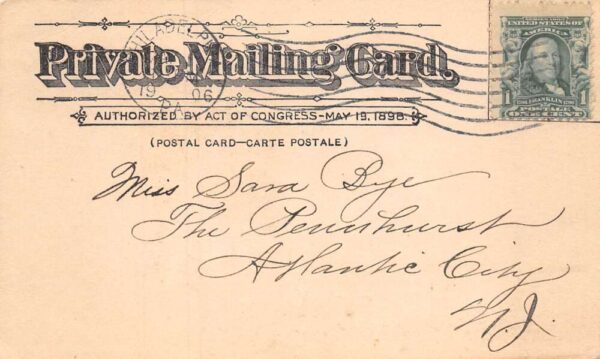 PHILADELP
19 06
PA
Private Mailing Card.
AUTHORIZED BY ACT OF CONGRESS-MAY 19, 1898.
(POSTAL CARD—CARTE POSTALE)
SERIES 1902
UNITED STATES OF
AMERICA
1 FRANKLIN 1
ONE CENT
Miss Sara Bye
The Pennhurst
Atlantic City
N.J.